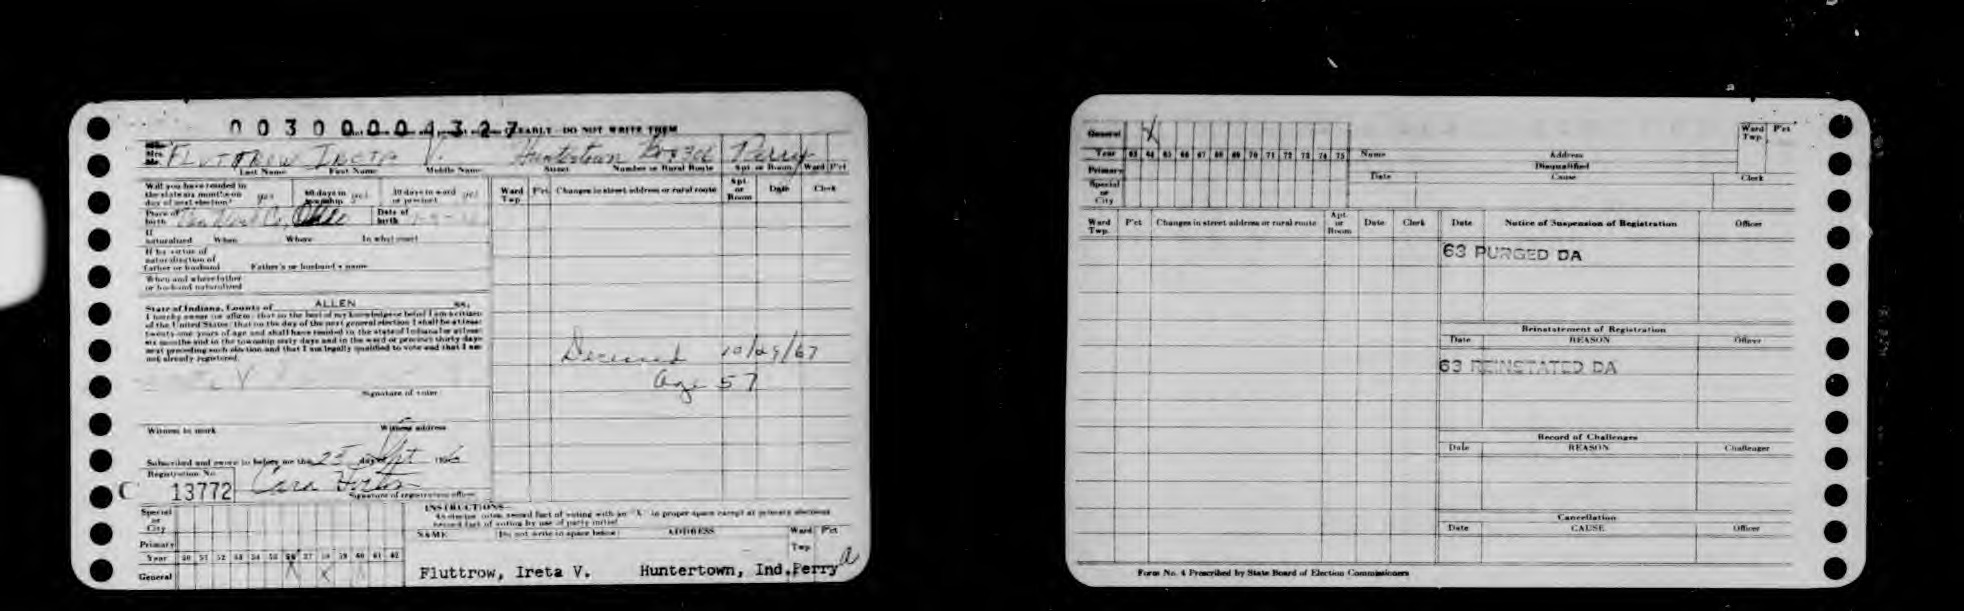 0030000 1327
CLEARLY - DO NOT WRITE THEM
Miss
Mrs.
Mr. FLUTTROW IRETA V. Huntertown Box 302 Perry
Last Name First Name Middle Name Street Number or Rural Route Apt or Room Ward P'ct
Will you have resided in the state six months on day of next election? yes 60 days in township yes 30 days in ward or precinct yes
Place of birth Van Wert Co, Ohio Date of birth
If naturalized When Where In what court
If by virtue of naturalization of father or husband Father's or husband's name
When and where father or husband naturalized
State of Indiana, County of ALLEN SS.
I hereby swear (or affirm) that to the best of my knowledge or belief I am a citizen
of the United States; that on the day of the next general election I shall be at least
twenty-one years of age and shall have resided in the state of Indiana for at least
six months and in the township sixty days and in the ward or precinct thirty days
next preceding such election and that I am legally qualified to vote and that I am
not already registered.
V
Signature of voter
Witness to mark Witness address
Subscribed and sworn to before me this 25 day of Sept 195
Registration No.
C 13772 Cara
Signature of registration officer
Ward Twp P'ct Changes in street address or rural route Apt. or Room Date Clerk
Deceased 10/29/67
Age 57
INSTRUCTIONS
As elector votes, record fact of voting with an "X" in proper space except at primary elections
record fact of voting by use of party initial
NAME (Do not write in space below) ADDRESS Ward Twp P'ct
Special or City
Primary
Year 50 51 52 53 54 55 56 57 58 59 60 61 62
General X X
Fluttrow, Ireta V. Huntertown, Ind. Perry a
General X
Year 63 64 65 66 67 68 69 70 71 72 73 74 75
Primary
Special or City
Name Address Ward Twp. P'ct
Disqualified
Date Cause Clerk
Ward Twp. P'ct Changes in street address or rural route Apt. or Room Date Clerk
Date Notice of Suspension of Registration Officer
63 PURGED DA
Reinstatement of Registration
Date REASON Officer
63 REINSTATED DA
Record of Challenges
Date REASON Challenger
Cancellation
Date CAUSE Officer
Form No. 4 Prescribed by State Board of Election Commissioners